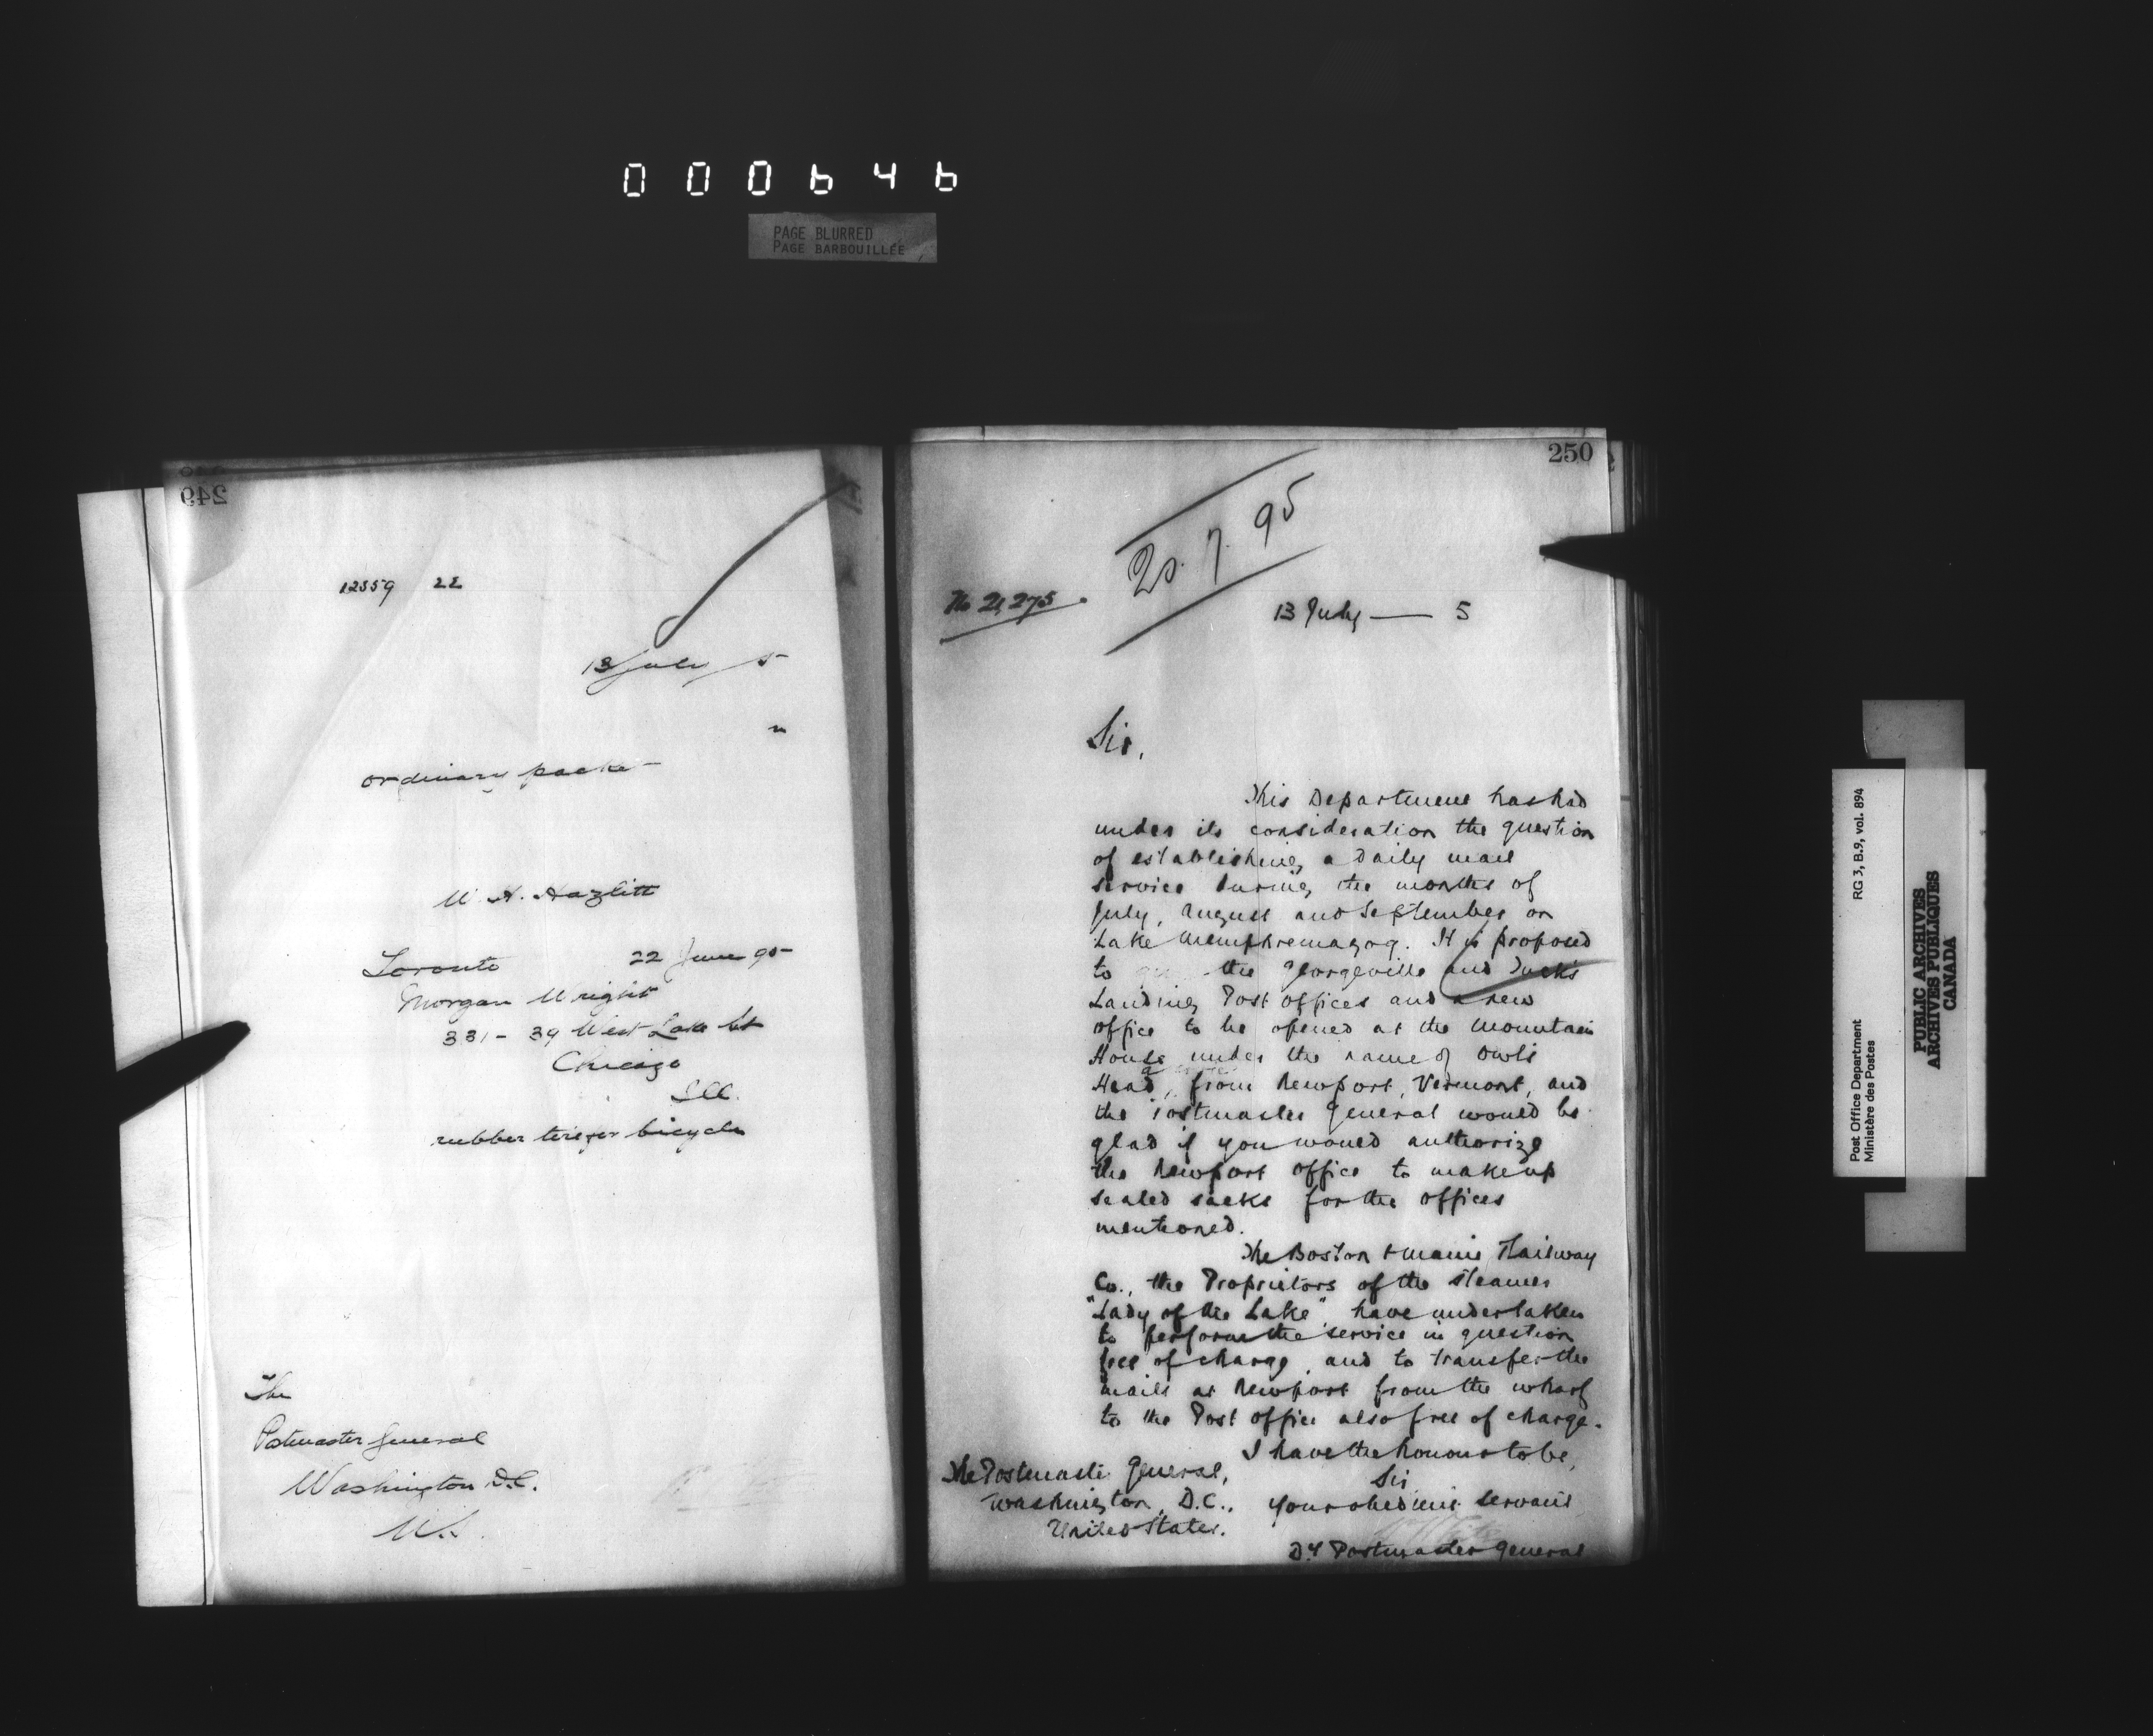 000646
PAGE BLURRED
PAGE BARBOUILLÉE
249
12359 22
13 July 5
ordinary packe
W. H. Hazlitt
Toronto 22 June 95
Morgan Wright
331-39 West Lake St
Chicago
Ill.
rubber tire for bicycle
The
Postmaster General
Washington D.C.
250
20.7.95
No 21,275.
13 July — 5
Sir,
This Department has had
under its consideration the question
of establishing a daily mail
service during the months of
July, August and September on
Lake Memphremagog. It is proposed
to the Georgeville and Tuck's
Landing Post Offices and a new
office to be opened at the Mountain
House under the name of Owl's
Head, from Newport, Vermont, and
the Postmaster General would be
glad if you would authorize
the Newport office to make up
sealed sacks for the offices
mentioned.
The Boston & Maine Railway
Co., the Proprietors of the steamer
"Lady of the Lake", have undertaken
to perform the service in question
free of charge, and to transfer the
mails at Newport from the wharf
to the Post Office also free of charge.
I have the honour to be,
Sir
Your obedient servant
Dy Postmaster General
The Postmaster General,
Washington, D.C.,
United States.
RG 3, B.9, vol. 894
Post Office Department
Ministère des Postes
PUBLIC ARCHIVES
ARCHIVES PUBLIQUES
CANADA